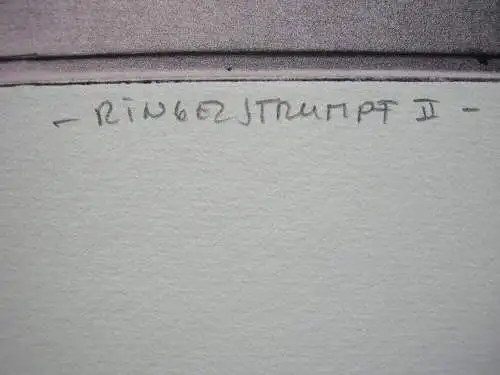 - RINGELSTRUMPF II -